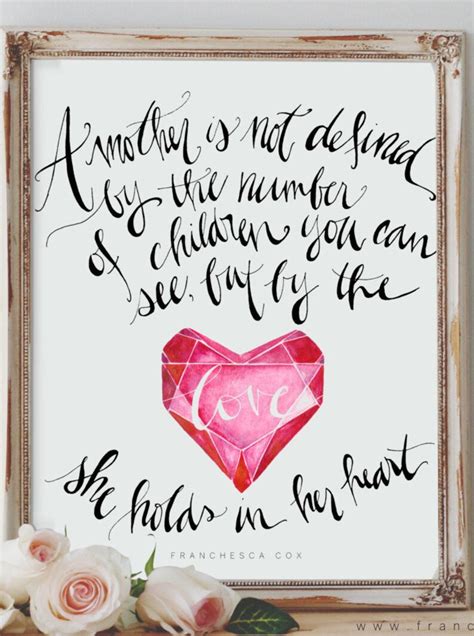 A mother is not defined
by the number
of children you can
see, but by the
love
she holds in her heart
FRANCHESCA COX
www.franc